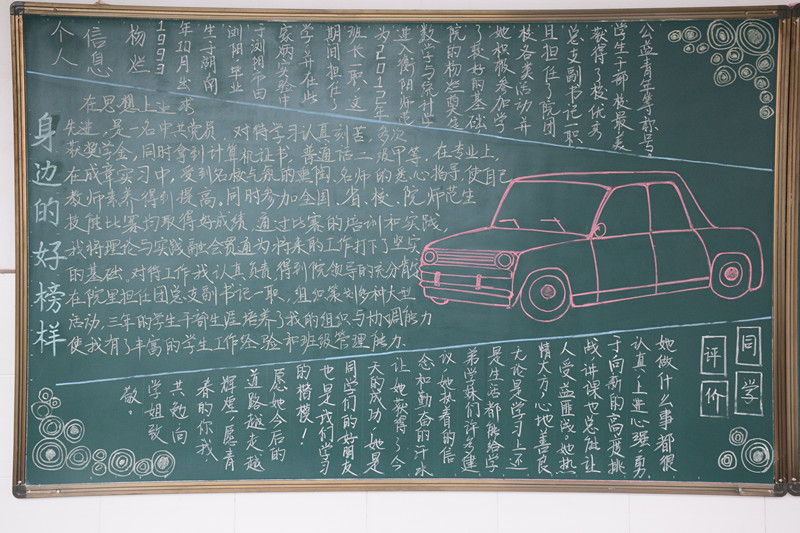 个人
信息
杨烂
1999
年10月出
生于湖南
浏阳毕业
于浏阳市田
家炳实验中
学并在此
期间担任了
班长一职,这
为2015年
进入衡阳师范
数学与统计学
院的杨烂奠定
了较好的基础
她积极参加学
校各类活动并
且担任了院团
总支副书记一职
获得了校优秀
学生干部校最美
公益青年等称号。
身边的好榜样
在思想上追求
先进,是一名中共党员,对待学习认真刻苦,多次
获奖学金,同时拿到计算机证书,普通话二级甲等,在专业上,
在成章实习中,受到名校氛围的熏陶,名师的悉心指导,使自己
教师素养得到提高,同时参加全国、省、校、院师范生
技能比赛均取得好成绩,通过比赛的培训和实践,
我将理论与实践融会贯通为将来的工作打下了坚实
的基础,对待工作我认真负责得到院领导的充分肯定
在院里担任团总支副书记一职,组织策划多种大型
活动,三年的学生干部生涯培养了我的组织与协调能力
使我有了丰富的学生工作经验和班级管理能力.
同学
评价
她做什么事都很
认真,上进心强,勇
于向新的高度挑
战讲课也总能让
人受益匪浅。她热
情大方,心地善良
无论是学习上还
是生活都能给学
弟学妹们许多建
议,她执着的信
念和勤奋的汗水
让她获得了今
天的成功,她是
同学们的好朋友
也是我们学习
的楷模!
愿她今后的
道路越走越
辉煌,愿青
春的你我
共勉,向
学姐致
敬。